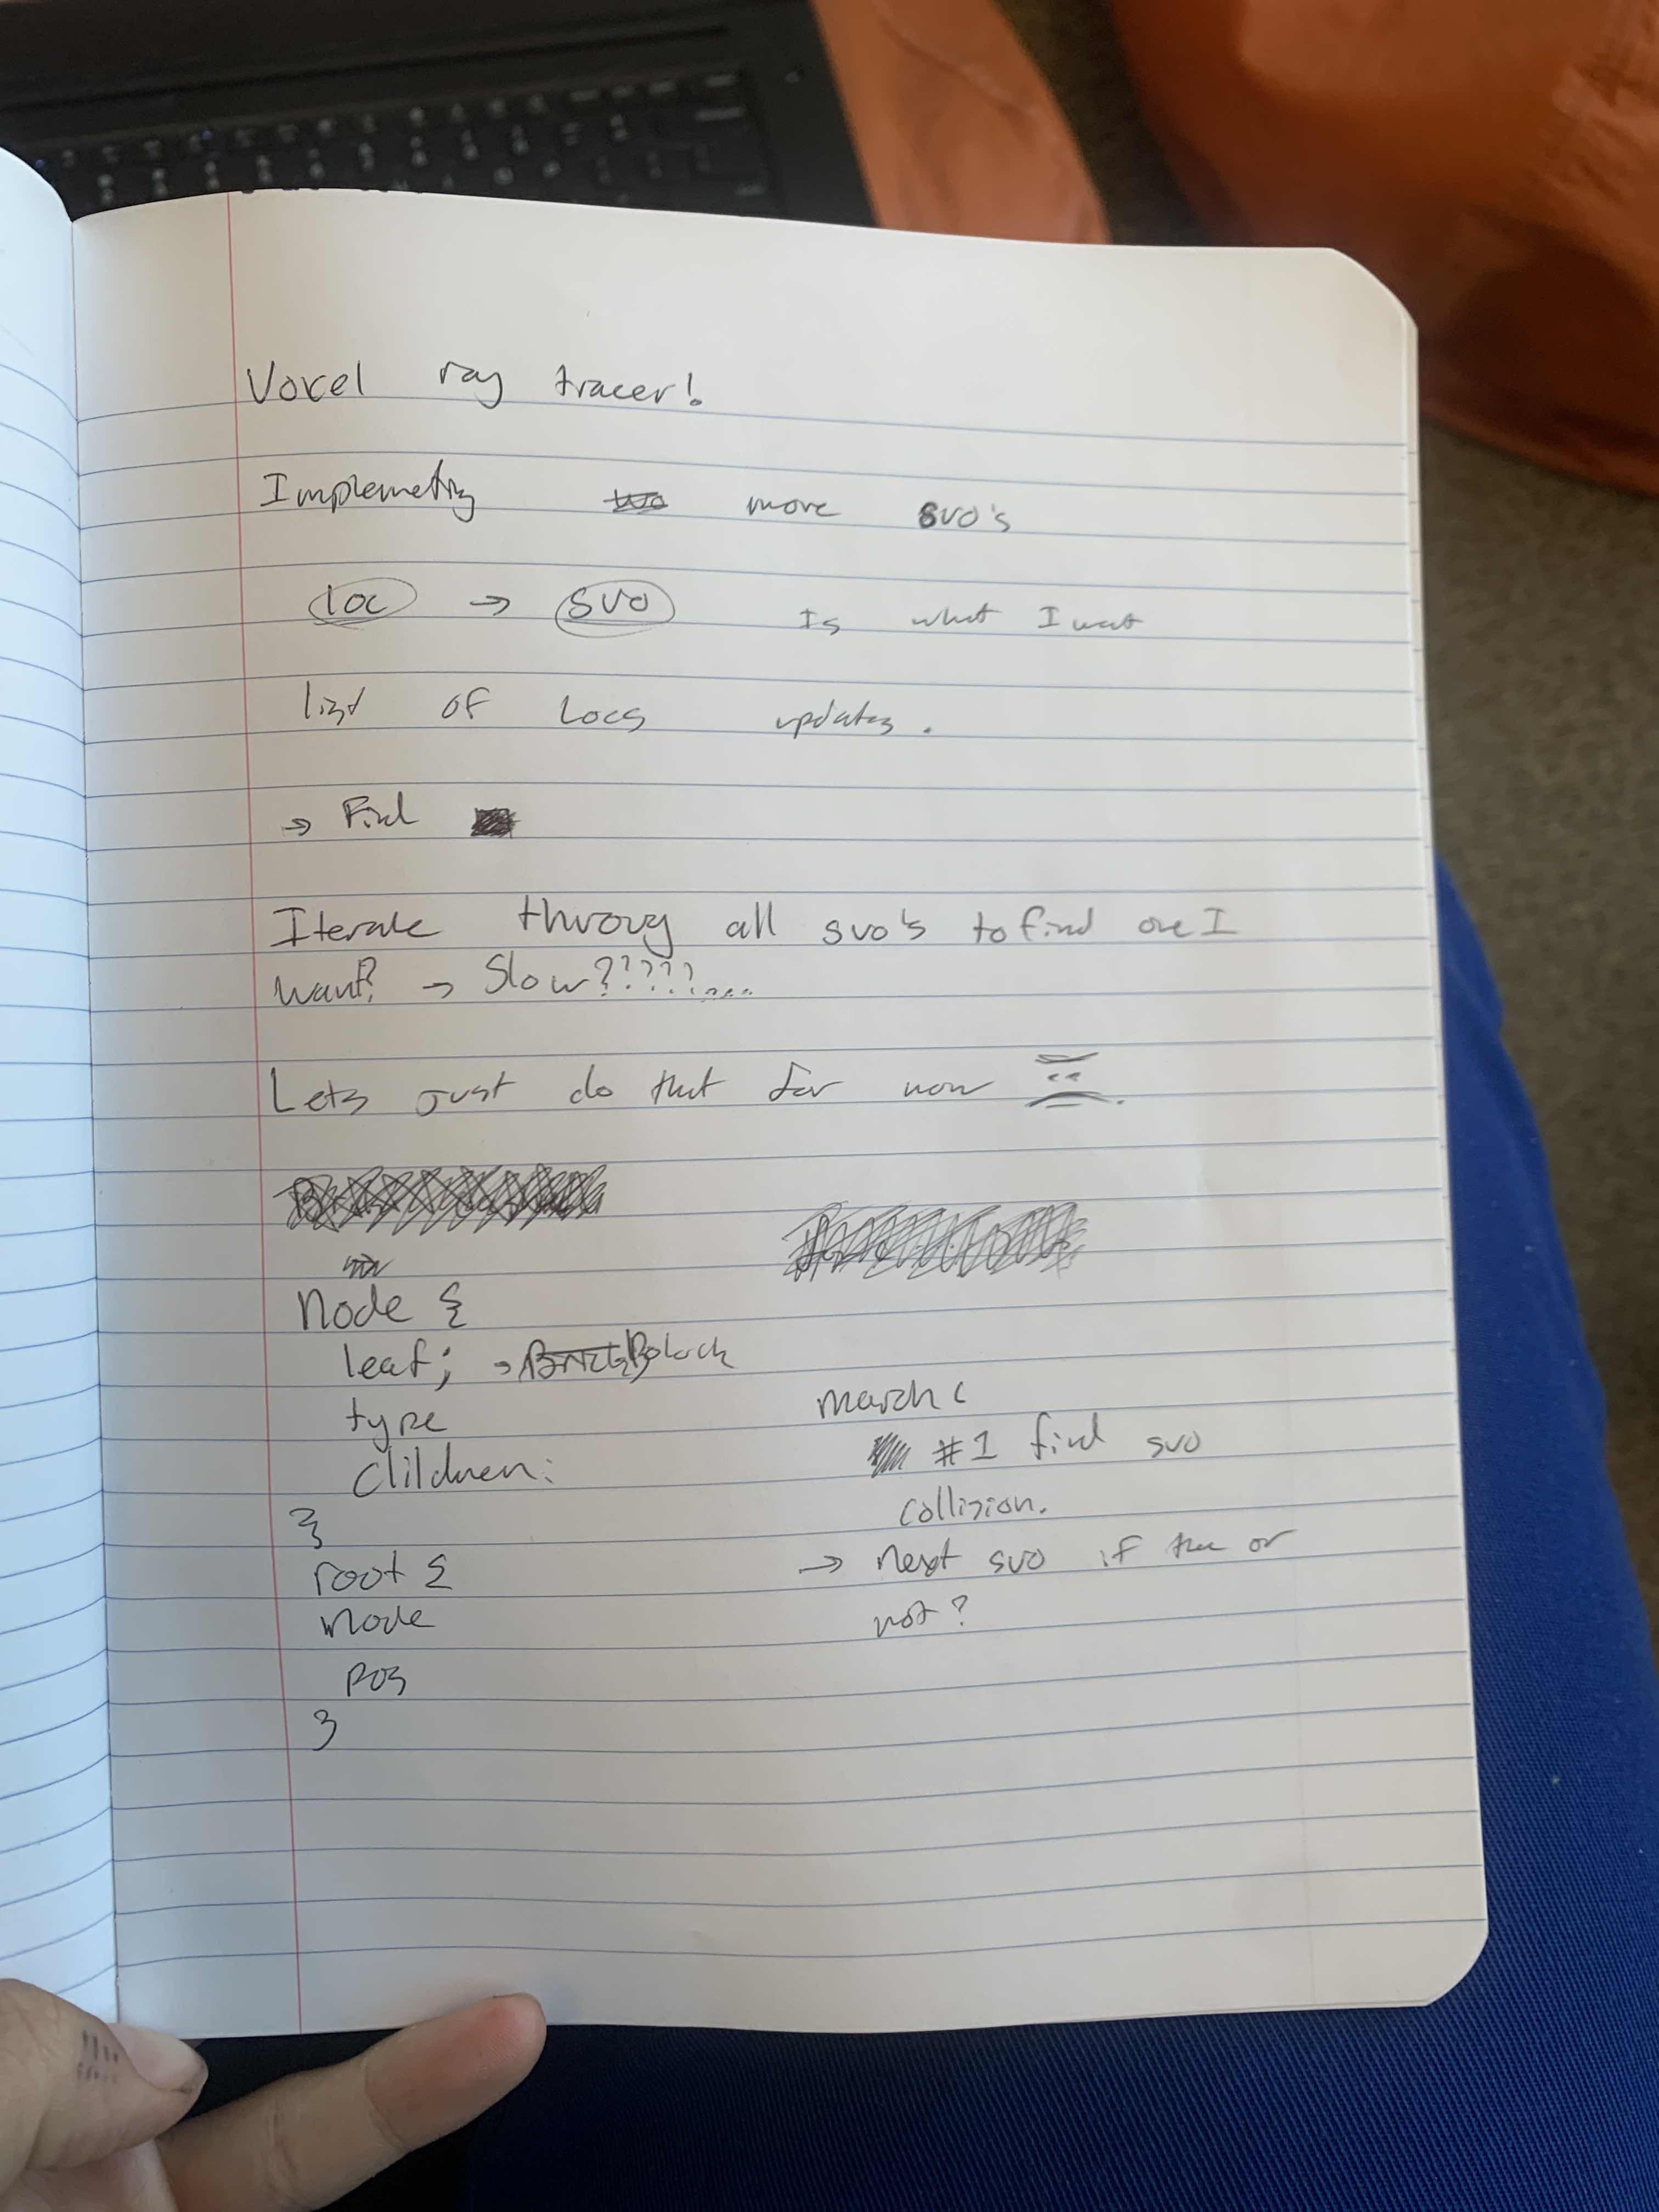 Voxel ray tracer!
Implemeting two more svo's
loc → svo Is what I want
list of Locs updates.
→ Find
Iterate throug all svo's to find one I
want? → Slow?????....
Lets just do that for now
Node {
leaf; → Brick Bolock
type
Clildren:
}
root {
Node
pos
}
march (
#1 find svo
collision.
→ Next svo if true or
not?